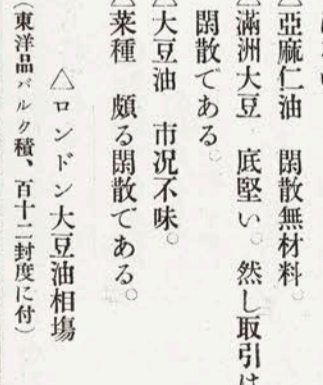 △亞麻仁油　閑散無材料。
△滿洲大豆　底堅い。然し取引は
閑散である。
△大豆油　市況不味。
△菜種　頗る閑散である。
△ロンドン大豆油相塲
（東洋品バルク積、百十二封度に付）